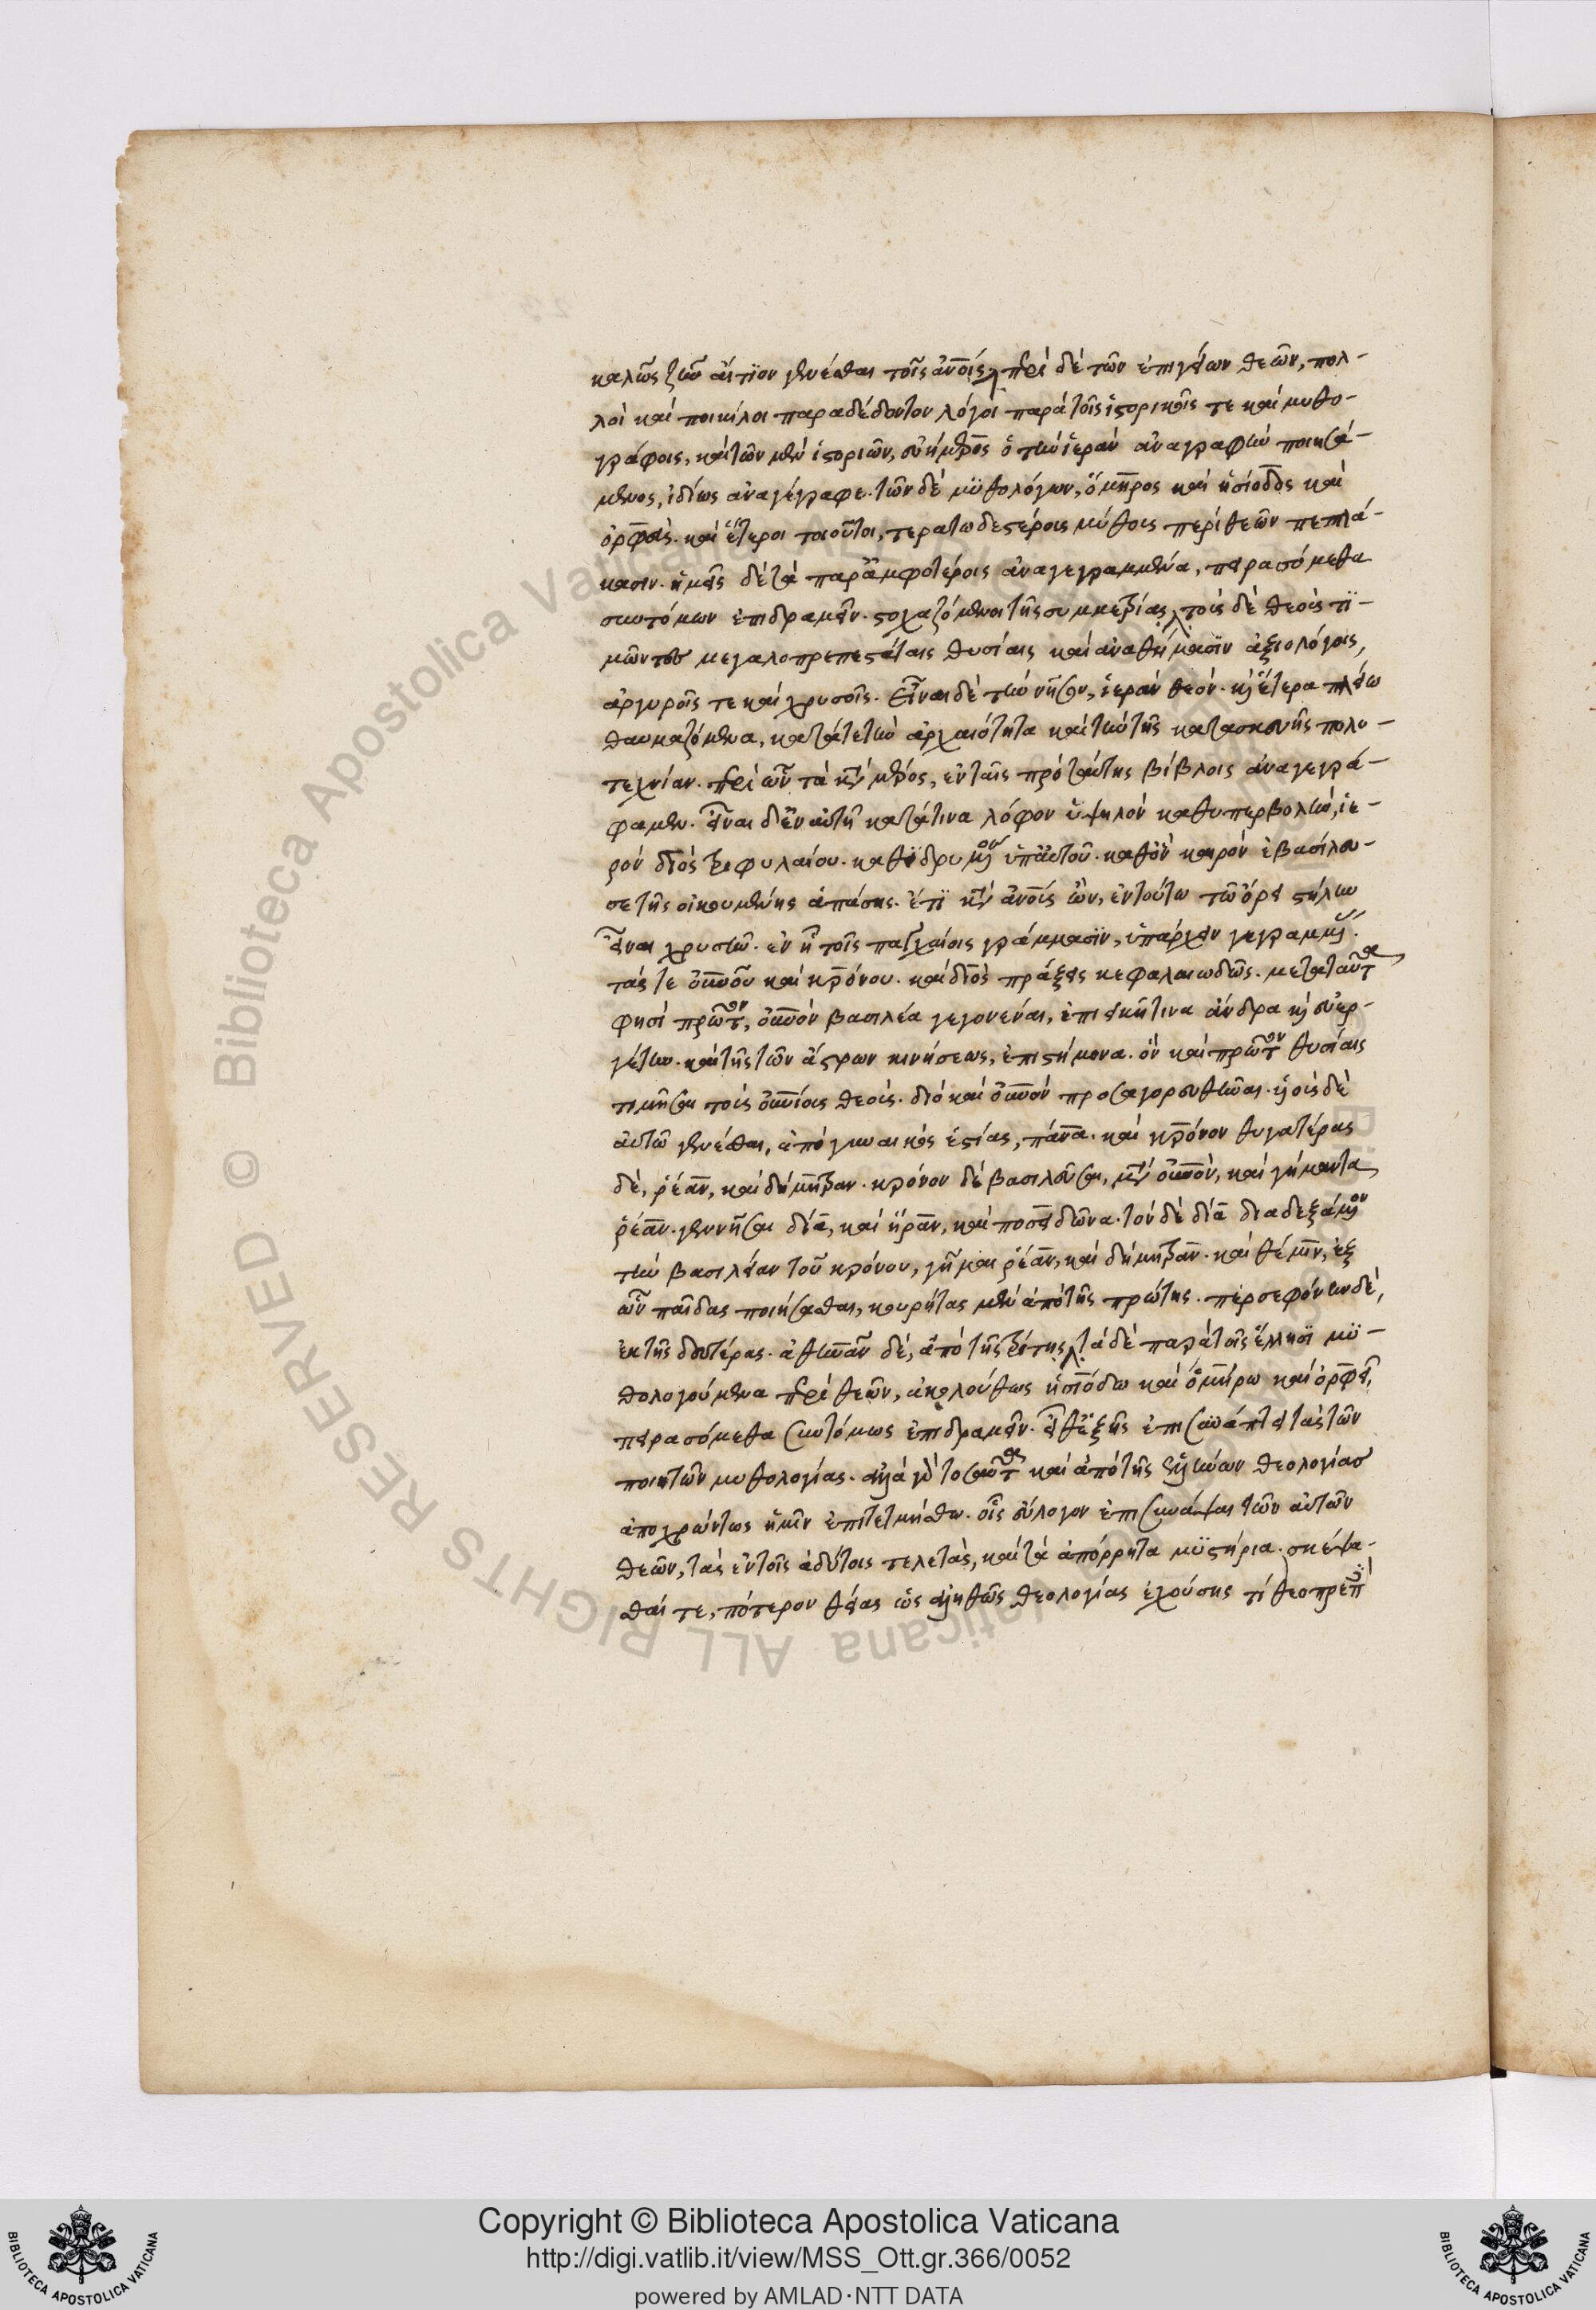 καλῶς ζῆν αἴτϊον γενέσθαι τοῖς ἀνοις. περὶ δὲ τῶν ἐπιγείων θεῶν, πολ-
λοὶ καὶ ποικίλοι παραδέδονται λόγοι παρὰ τοῖς ἱστορικοῖς τε καὶ μυθο-
γράφοις. καὶ τῶν μὲν ἱστοριῶν, εὐήμερος ὁ τὴν ἱερὰν ἀναγραφὴν ποιησά-
μενος, ἰδίως ἀναγέγραφε. τῶν δὲ μϋθολόγων, ὅμηρος καὶ ἡσίοδος καὶ
ὀρφεὺς. καὶ ἕτεροι τοιοῦτοι, τερατωδεστέροις μύθοις περὶ θεῶν πεπλά-
κασιν. ἡμεῖς δὲ τὰ παρ' ἀμφοτέροις ἀναγεγραμμένα, πειρασόμεθα
συντόμων ἐπιδραμεῖν. στοχαζόμενοι τῆς συμμετρίας. τοὺς δὲ θεοὺς τϊ-
μῶντες μεγαλοπρεπεστάταις θυσίαις καὶ ἀναθήμασϊν ἀξιολόγοις,
ἀργυροῖς τε καὶ χρυσοῖς. Εἶναι δὲ τὴν νῆσον, ἱερὰν θεὸν. καὶ ἕτερα πλείω
θαυμαζόμενα, κατά τε τὴν ἀρχαιότητα καὶ τὴν τῆς κατασκευῆς πολυ-
τεχνίαν. περὶ ὧν τὰ κατὰ μέρος, ἐν ταῖς πρὸ ταύτης βίβλοις ἀναγεγρά-
φαμεν. εἶναι δ' ἐν αὐτῆ κατά τινα λόφον ὑψηλὸν καθυπερβολὴν, ἱε-
ρὸν διὸς τριφυλαίου. καθϊδρυμένον ὑπ' αὐτοῦ. καθὃν καιρὸν ἐβασίλευ-
σε τῆς οἰκουμένης ἁπάσης. ἔτϊ κατὰ ἀνους ὢν, ἐν τούτω τῶ ὄρει στήλην
εἶναι χρυσῆν. ἐν ἧ τοῖς παγχαίοις γράμμασϊν, ὑπάρχειν γεγραμμένας.
τάς τε οὐνοῦ καὶ κρόνου. καὶ διὸς πράξεις κεφαλαιωδῶς. μετὰ ταῦτα
φησὶ πρῶτον, οὐνὸν βασιλέα γεγονέναι, ἐπιεικῆ τινα ἄνδρα καὶ εὐερ-
γέτην. καὶ τῆς τῶν ἄστρων κινήσεως, ἐπιστήμονα. ὃν καὶ πρῶτον θυσίαις
τιμῆσαι τοὺς οὐνίους θεοὺς. διὸ καὶ οὐνὸν προσαγορευθῆναι. υἱοὺς δὲ
αὐτῶ γενέσθαι, ἀπὸ γυναικὸς ἑστίας, πάνα. καὶ κρόνον θυγατέρας
δὲ, ῥέαν, καὶ δήμητραν. κρόνον δὲ βασιλεῦσαι, μετὰ οὐνὸν, καὶ γήμαντα
ῥέαν. γεννῆσαι δία, καὶ ἥραν, καὶ ποσειδῶνα. τὸν δὲ δία διαδεξάμενον
τὴν βασιλείαν τοῦ κρόνου, γῆμαι ῥέαν, καὶ δήμητραν. καὶ θέμιν, ἐξ
ὧν παῖδας ποιήσασθαι, κουρήτας μὲν ἀπὸ τῆς πρώτης. περσεφόνην δὲ,
ἐκ τῆς δευτέρας. ἀθηνᾶν δὲ, ἀπὸ τῆς τρίτης. τὰ δὲ παρὰ τοῖς ἕλλησϊ μϋ-
θολογούμενα περὶ θεῶν, ἀκολούθως ἡσιόδω καὶ ὁμήρω καὶ ὀρφεῖ,
πειρασόμεθα συντόμως ἐπιδραμεῖν. εἶθ' ἑξῆς ἐπισυνάπτει τὰς τῶν
ποιητῶν μυθολογίας. ἀλλὰ γὰρ τοσαῦτα καὶ ἀπὸ τῆς ἑλλήνων θεολογίας
ἀποχρώντως ἡμῖν ἐπιτετμήσθω. οἷς εὔλογον ἐπισυνάψαι τῶν αὐτῶν
θεῶν, τὰς ἐν τοῖς ἀδύτοις τελετὰς, καὶ τὰ ἀπόρρητα μϋστήρια. σκέψα-
σθαί τε, πότερον θείας ὡς ἀληθῶς θεολογίας ἐχούσης τί θεοπρεπὲς
Copyright © Biblioteca Apostolica Vaticana
http://digi.vatlib.it/view/MSS_Ott.gr.366/0052
powered by AMLAD·NTT DATA